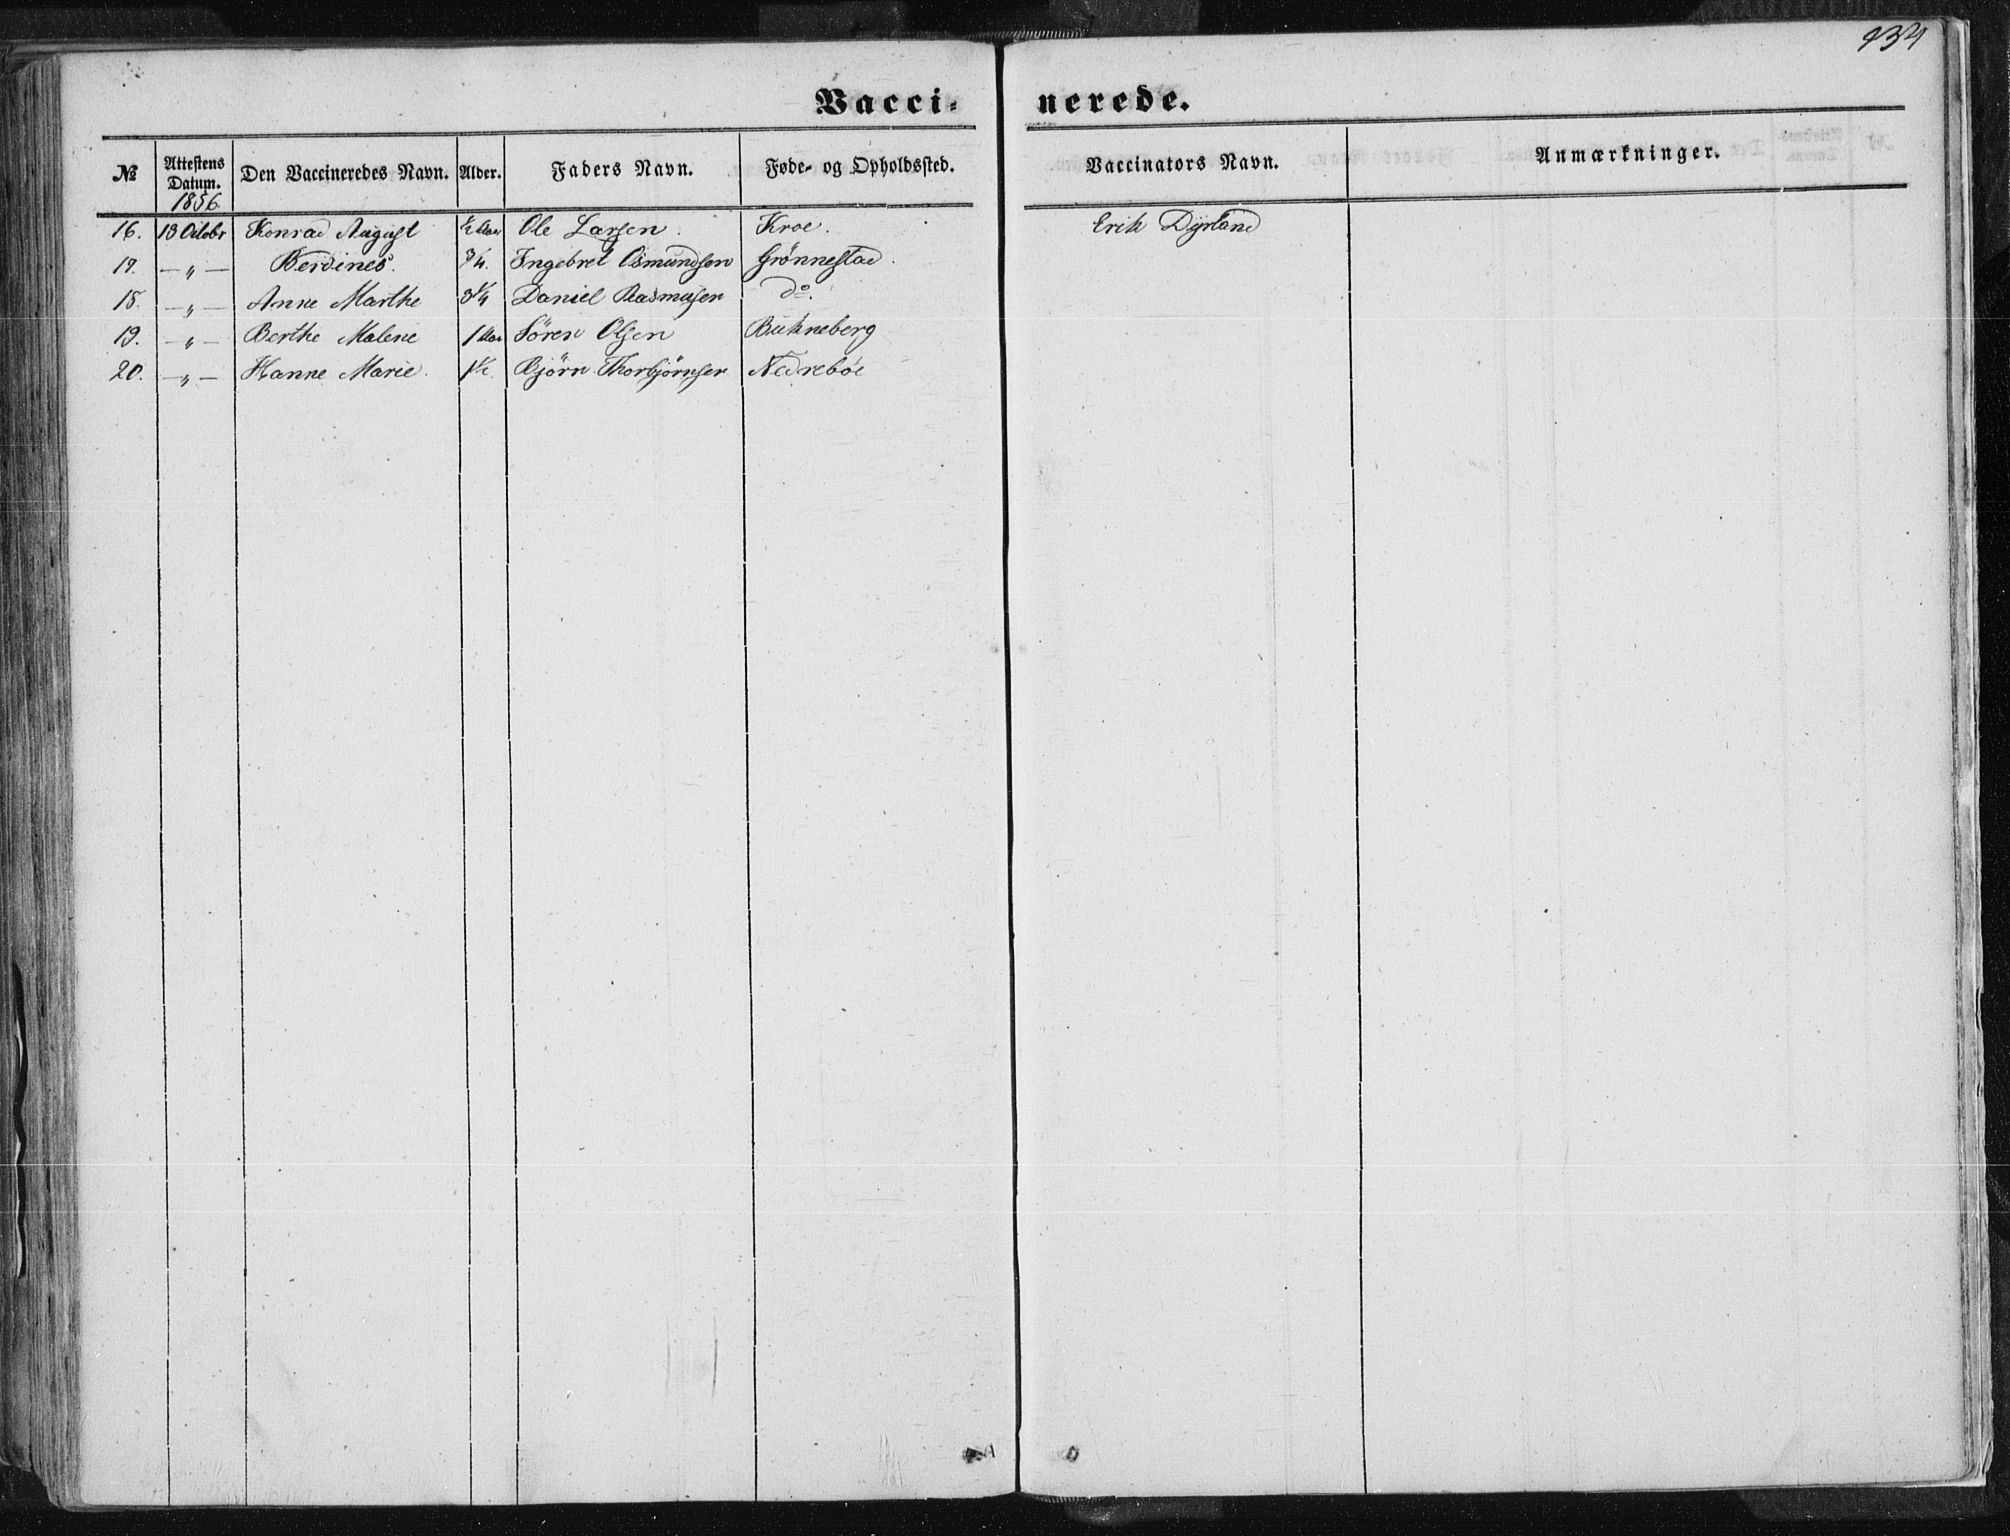 434
Vacci- nerede.
№ | Attestens Datum. 1856 | Den Vaccineredes Navn. | Alder. | Faders Navn. | Føde- og Opholdssted. | Vaccinators Navn. | Anmærkninger.
16. | 13 Octobr | Konrad August | ½ Aar | Ole Larsen. | Kroe. | Erik Dyrland
17. | —〃— | Berdines. | ¾. | Ingebret Osmundsen | Grønnestad.
18. | —〃— | Anne Marthe | 3¼ | Daniel Rasmusen | do.
19. | —〃— | Berthe Malene | 1 Aar | Sören Olsen | Bukneberg
20. | —〃— | Hanne Marie. | 1½. | Björn Thorbjørnsen | Nedrebøe